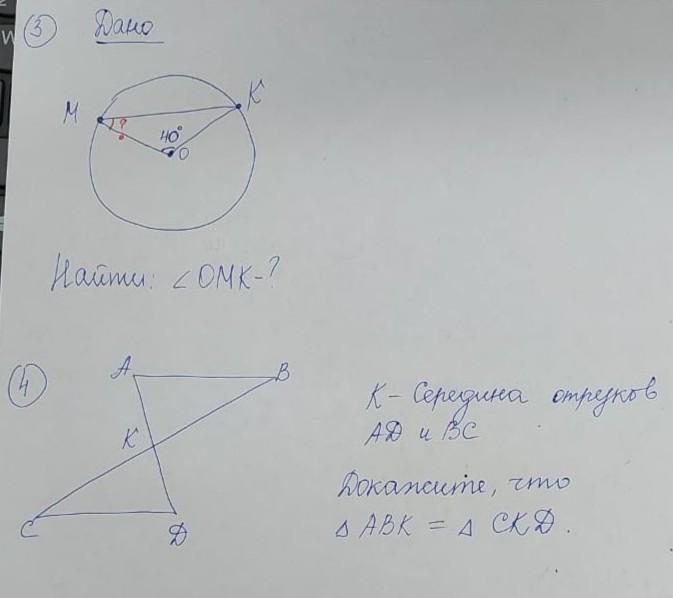 W
③ Дано
M
K
?
40°
O
Найти: ∠OMK-?
④
A
B
K
C
D
K- Середина отрезков
AD и BC
Докажите, что
△ ABK = △ CKD.